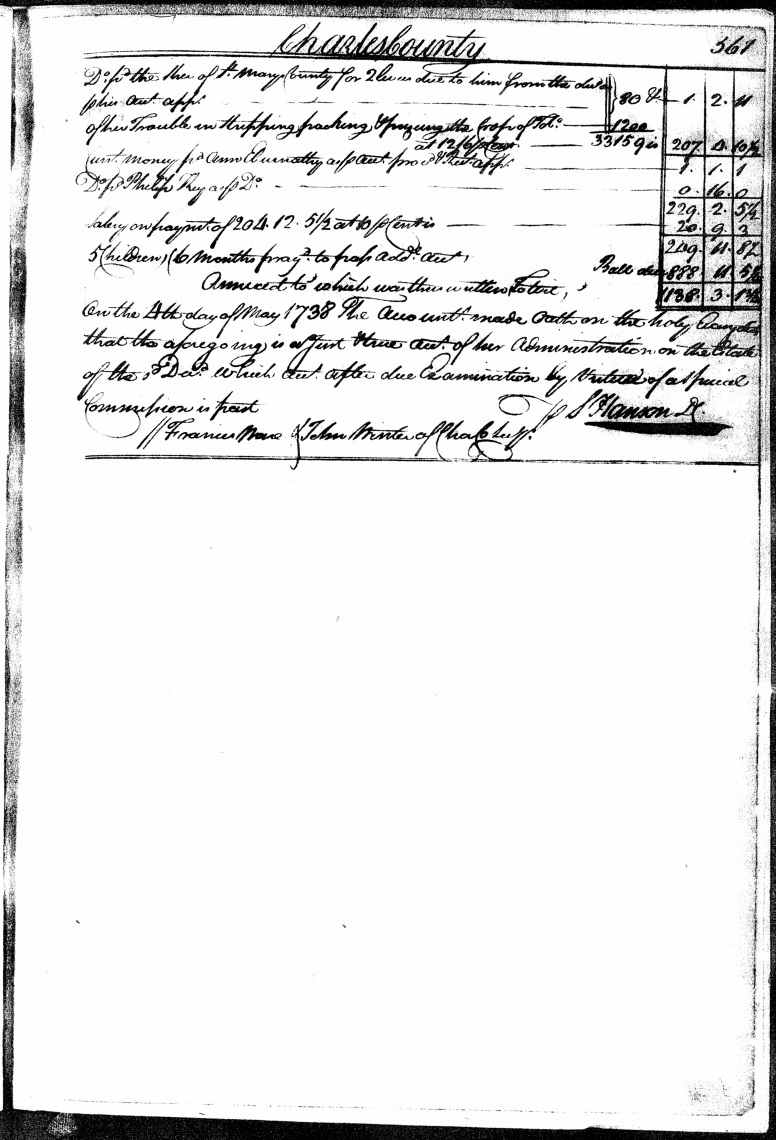 Charles County 561
Do. pd. the Sher of St. Marys County for 2 Levies due to him from the decd.
p his acct. appr. 80 & 1. 2. 11
of her Trouble in Stripping packing & prizing the Crop of Tobo. 1200
at 12/6 p Cent 33159 is 207. 4. 10½
Curt. money pd. Ann Abernathy as p acct. provd. & Rect. appr. 1. 1. 1
Do. pd. Philip Key as p Do. 0. 16. 0
229. 2. 5½
Salery on paymt. of 204. 12. 5½ at 10 p Cent is 20. 9. 3
249. 11. 8½
5 Children, (6 months prayd. to pass addl. acct, Ball due 888. 11. 5
1138. 3. 1½
Annexed to which was thus written To wit,
On the 4th day of May 1738 The Accountt. made Oath on the holy Evangelist
that the aforegoing is a Just & true acct. of her Administration on the Estate
of the sd. Decd. which acct. after due Examination by Virtue of a Special
Commission is past
p S Hanson D.
// Francis Ware } John Winter of Cha Co